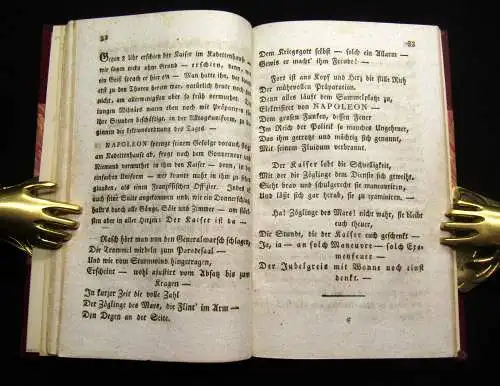 52
Gegen 8 Uhr erschien der Kaiser im Kadettenhaus —
wir sagen nicht ohne Grund — erschien, denn, wie
ein Geist sprach er hier ein — Man hatte ihn, der kaum
erst zu den Thoren herein war, natürlich heute noch
nicht, am allerwenigsten aber so früh vermuthet. Die
jungen Militärs waren eben noch mit Präparir
ihre Stunden beschäftigt, in der Alltagsuniform, zu
beginnen die Lekzionsordnung des Tages. —
NAPOLEON sprengt seinem Gefolge voraus,
am Kadettenhaus ab, fragt nach dem Gouverneur —
Niemand vermuthet in ihm den Kaiser — denn, in der
einfachen Uniform — wer konnte mehr in ihm zu
glauben, als einen Französischen Offizier. Indeß ist
auch seine Suite angekommen und, wie ein Donnerschlag
hallt's durch alle Gänge, Säle und Zimmer —
oben aber in aller Herzen: Der Kaiser ist da —
Rasch hört man nun den Generalmarsch schlagen,
Die Trommel wirbeln zum Paradesaal —
Und wie vom Sturmwind hingetragen,
Erscheint — wohl ajustirt vom Absatz bis zum
Kragen —
In kurzer Zeit die volle Zahl
Der Zöglinge des Mars, die Flint' im Arm —
Den Degen an der Seite.
53
Dem Kriegsgott selbst — solch ein Allarm —
Gewis er macht' ihm Freude!
Fort ist aus Kopf und Herz die stille Ruh
Der mühevollen Präparation.
Denn alles läuft dem Sammelplatz zu,
Elektrisirt von NAPOLEON —
Dem großen Funken, dessen Feuer
Im Reich der Politik so manches Ungeheuer,
Das ihm getrotzt und mächtig sich genannt,
Mit seinem Fluidum verbrannt.
Der Kaiser lobt die Schnelligkeit,
Mit der die Zöglinge dem Dienste sich geweiht,
Sieht brav und schulgerecht sie manoeuvriren,
Und läßt sich gar herab, sie zu examiniren. —
Ha! Zöglinge des Mars! nicht wahr, sie bleibt
euch theuer,
Die Stunde, die der Kaiser euch geschenkt —
Ja, ja — an solch Manoeuvre — solch Exa-
menfeuer —
Der Jubelgreis mit Wonne noch einst
denkt. —